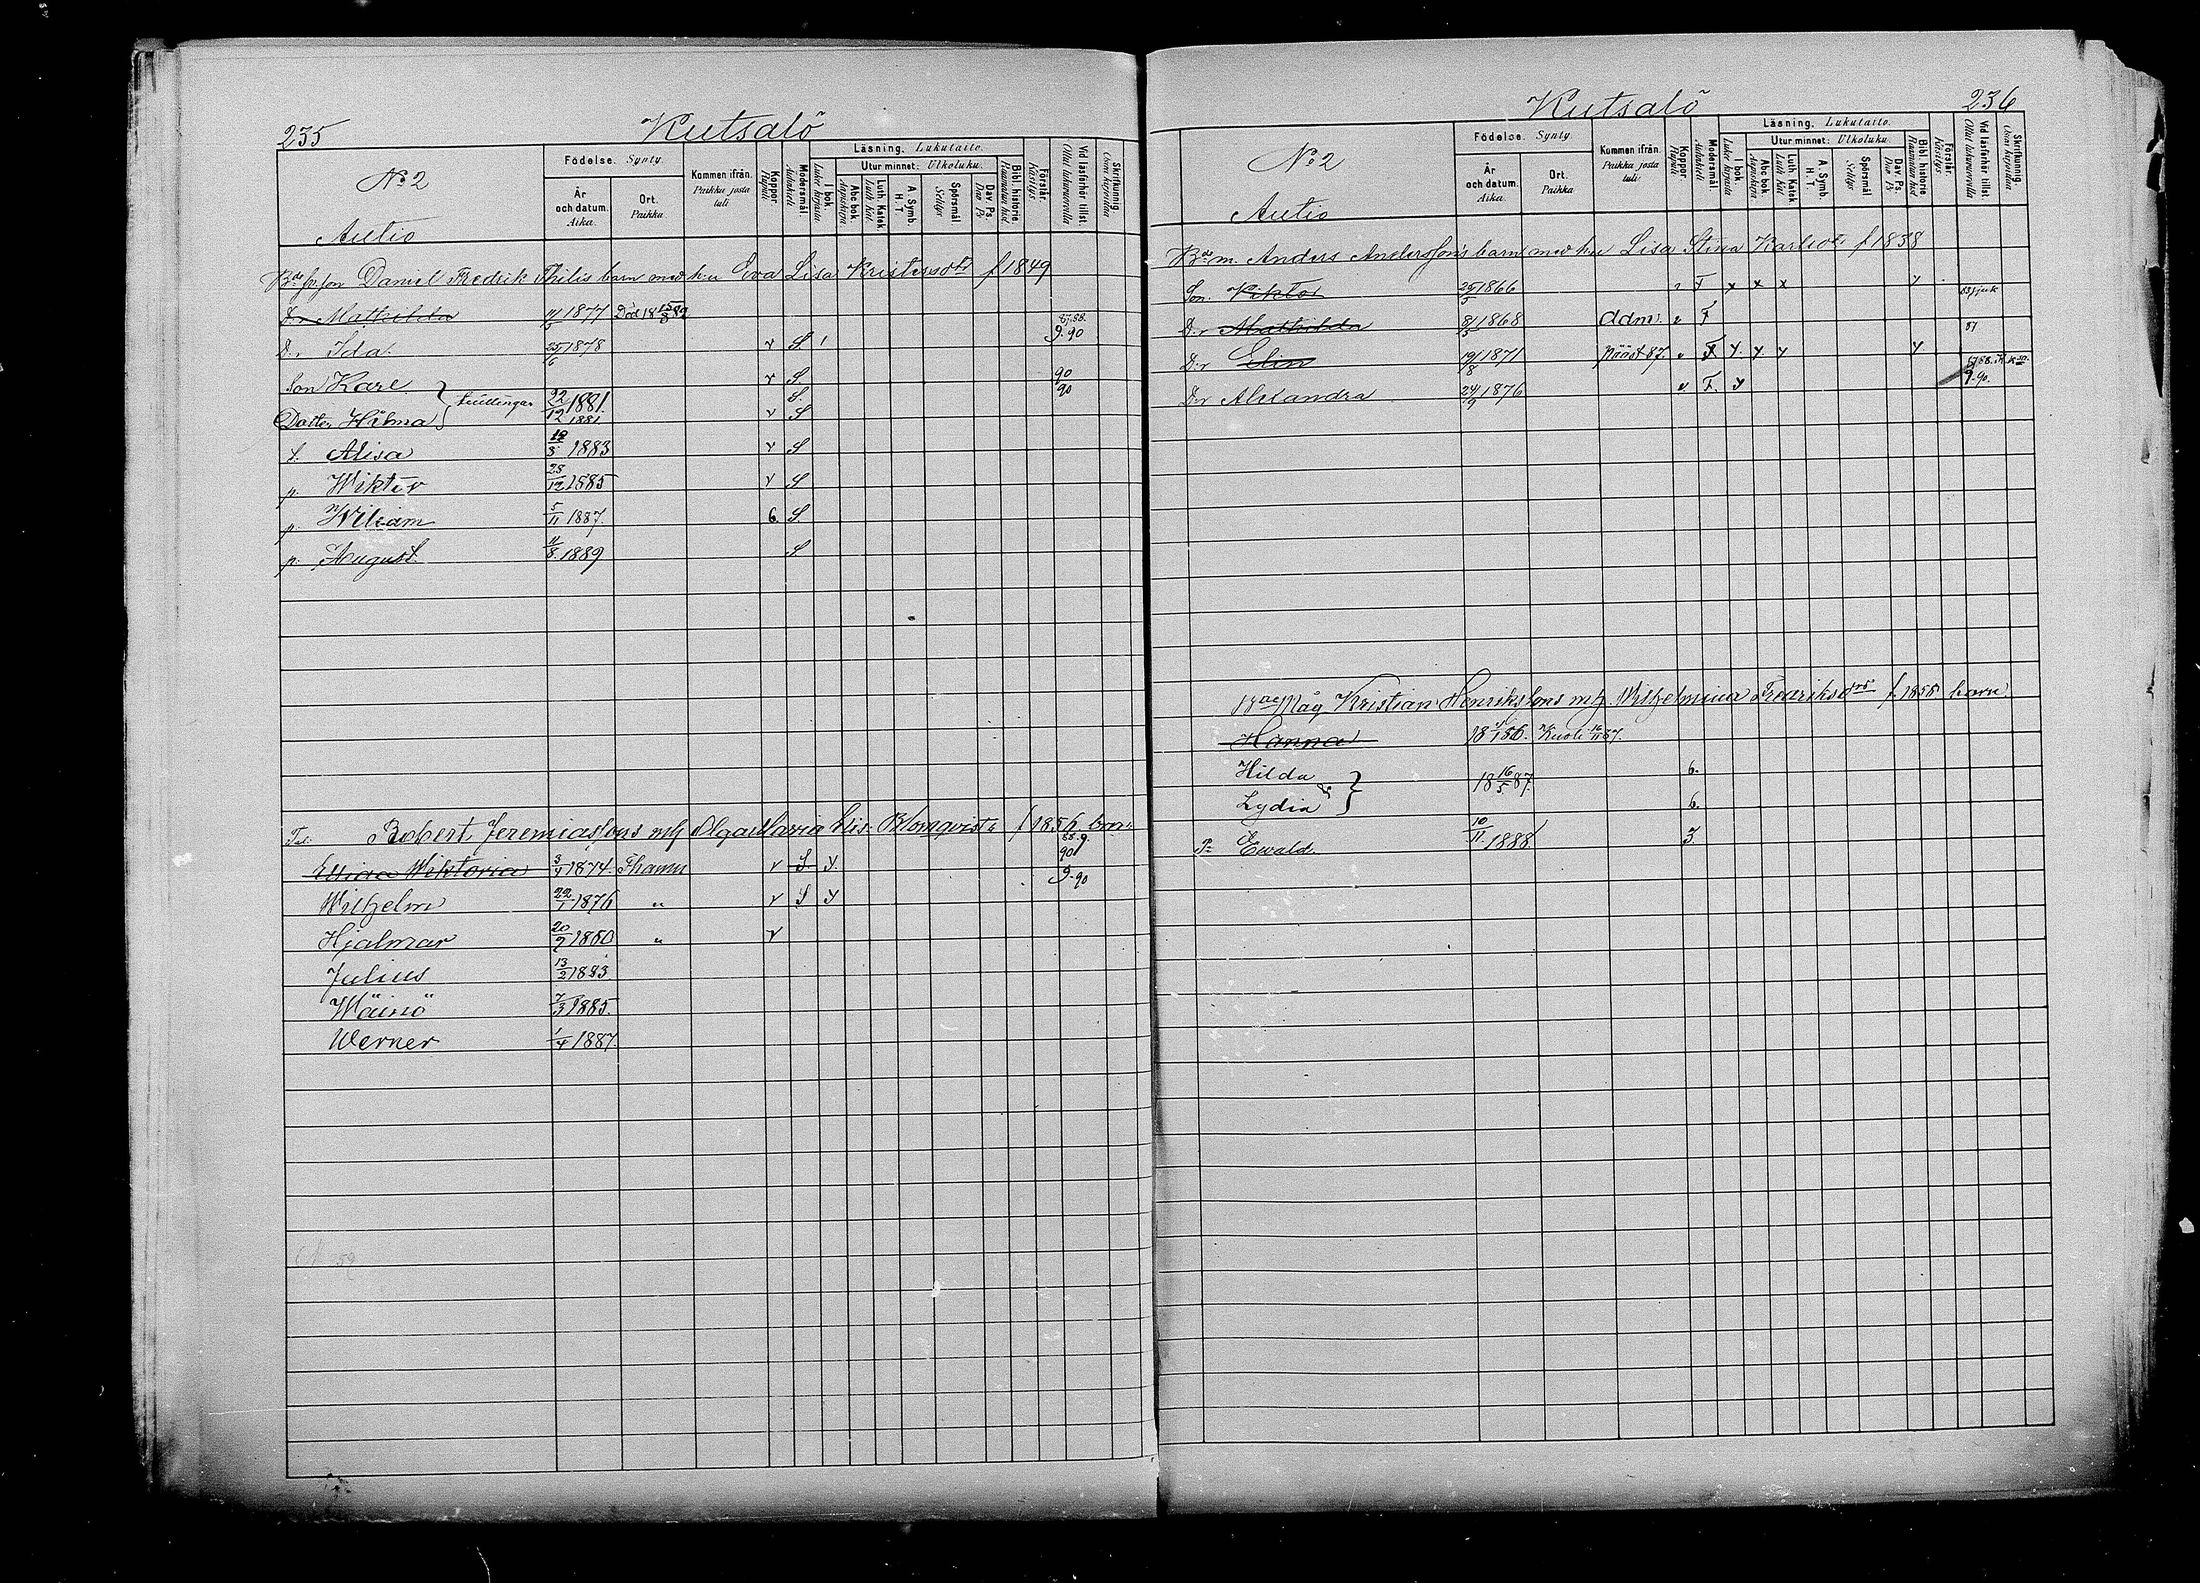 235
Kutsalö
Nº 2
Autio
Födelse. Synty.
År och datum. Aika.
Ort. Paikka
Kommen ifrån. Paikka josta tuli
Koppor. Rupuli
Modersmål. Äidinkieli
Läsning. Lukutaito.
I bok. Lukee kirjasta
Utur minnet: Ulkoluku.
Abc bok. Aapiskirja
Luth. Katek. Luth. Kat.
A. Symb. H. T
Spörsmål Selitys
Dav. Ps. Dav. Ps
Bibl. historie. Raamatun hist.
Förstår. Käsitys
Vid läsförhör tillst. Ollut lukuvuoroilla
Skrifkunnig. Osaa kirjoittaa
Daniel Fredrik Thilis barn med h:u Eva Lisa f 1849
D:r Mathilda 1877 Död
D:r Ida 25/6 1878 v S 9.90
Son Karl v S 90
tvillingar 22/12 1881. S. 90
Dotter Hilma 1881 v S
t. Alisa 1883 v S
p. Wiktor 28/12 1885 v S
p. Wiliam 5/11 1887. 6. S.
p. August. 11/8. 1889 S
Robert Jeremiassons Olga Maria Blomqvist f 1856
Wiktoria 1874. v S. y. 90
Wilhelm 22/1 1876 " v S y 9.90
Hjalmar 20/9 1880 " v
Julius 13/2 1883
Wäinö 7/3 1885.
Werner 1/4 1887
236
Kutsalö
Nº 2
Autio
Födelse. Synty.
År och datum. Aika.
Ort. Paikka
Kommen ifrån. Paikka josta tuli
Koppor. Rupuli
Modersmål. Äidinkieli
Läsning. Lukutaito.
I bok. Lukee kirjasta
Utur minnet: Ulkoluku.
Abc bok. Aapiskirja
Luth. Katek. Luth. Kat.
A. Symb. H. T
Spörsmål Selitys
Dav. Ps. Dav. Ps
Bibl. historie Raamatun hist
Förstår. Käsitys
Vid läsförhör tillst. Ollut lukuvuoroilla
Skrifkunnig. Osaa kirjoittaa
Anders Anderssons barn med h:u Lisa Stina f 1838
Son. Viktor 25/5 1866 F x x x
D:r Mathilda 1868 F 87
D:r Elin 19/8 1871 87. F y. y. y y
D:r Alexandra 24/9 1876 F. y 9.90.
Måg Kristian Henrikssons Wilhelmina Fredriksd:r barn
Hanna Kuoli
Hilda 18 16/5 87. 6.
Lydia 6.
P: Ewald. 10/11. 1888 3.